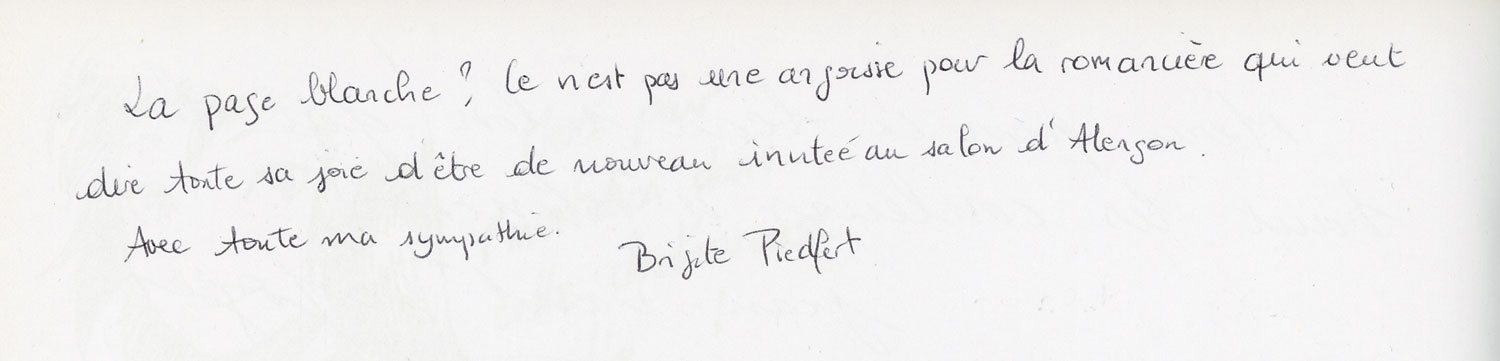 La page blanche ? Ce n'est pas une angoisse pour la romancière qui veut
dire toute sa joie d'être de nouveau invitée au salon d'Alençon.
Avec toute ma sympathie.
Brigitte Piedfert